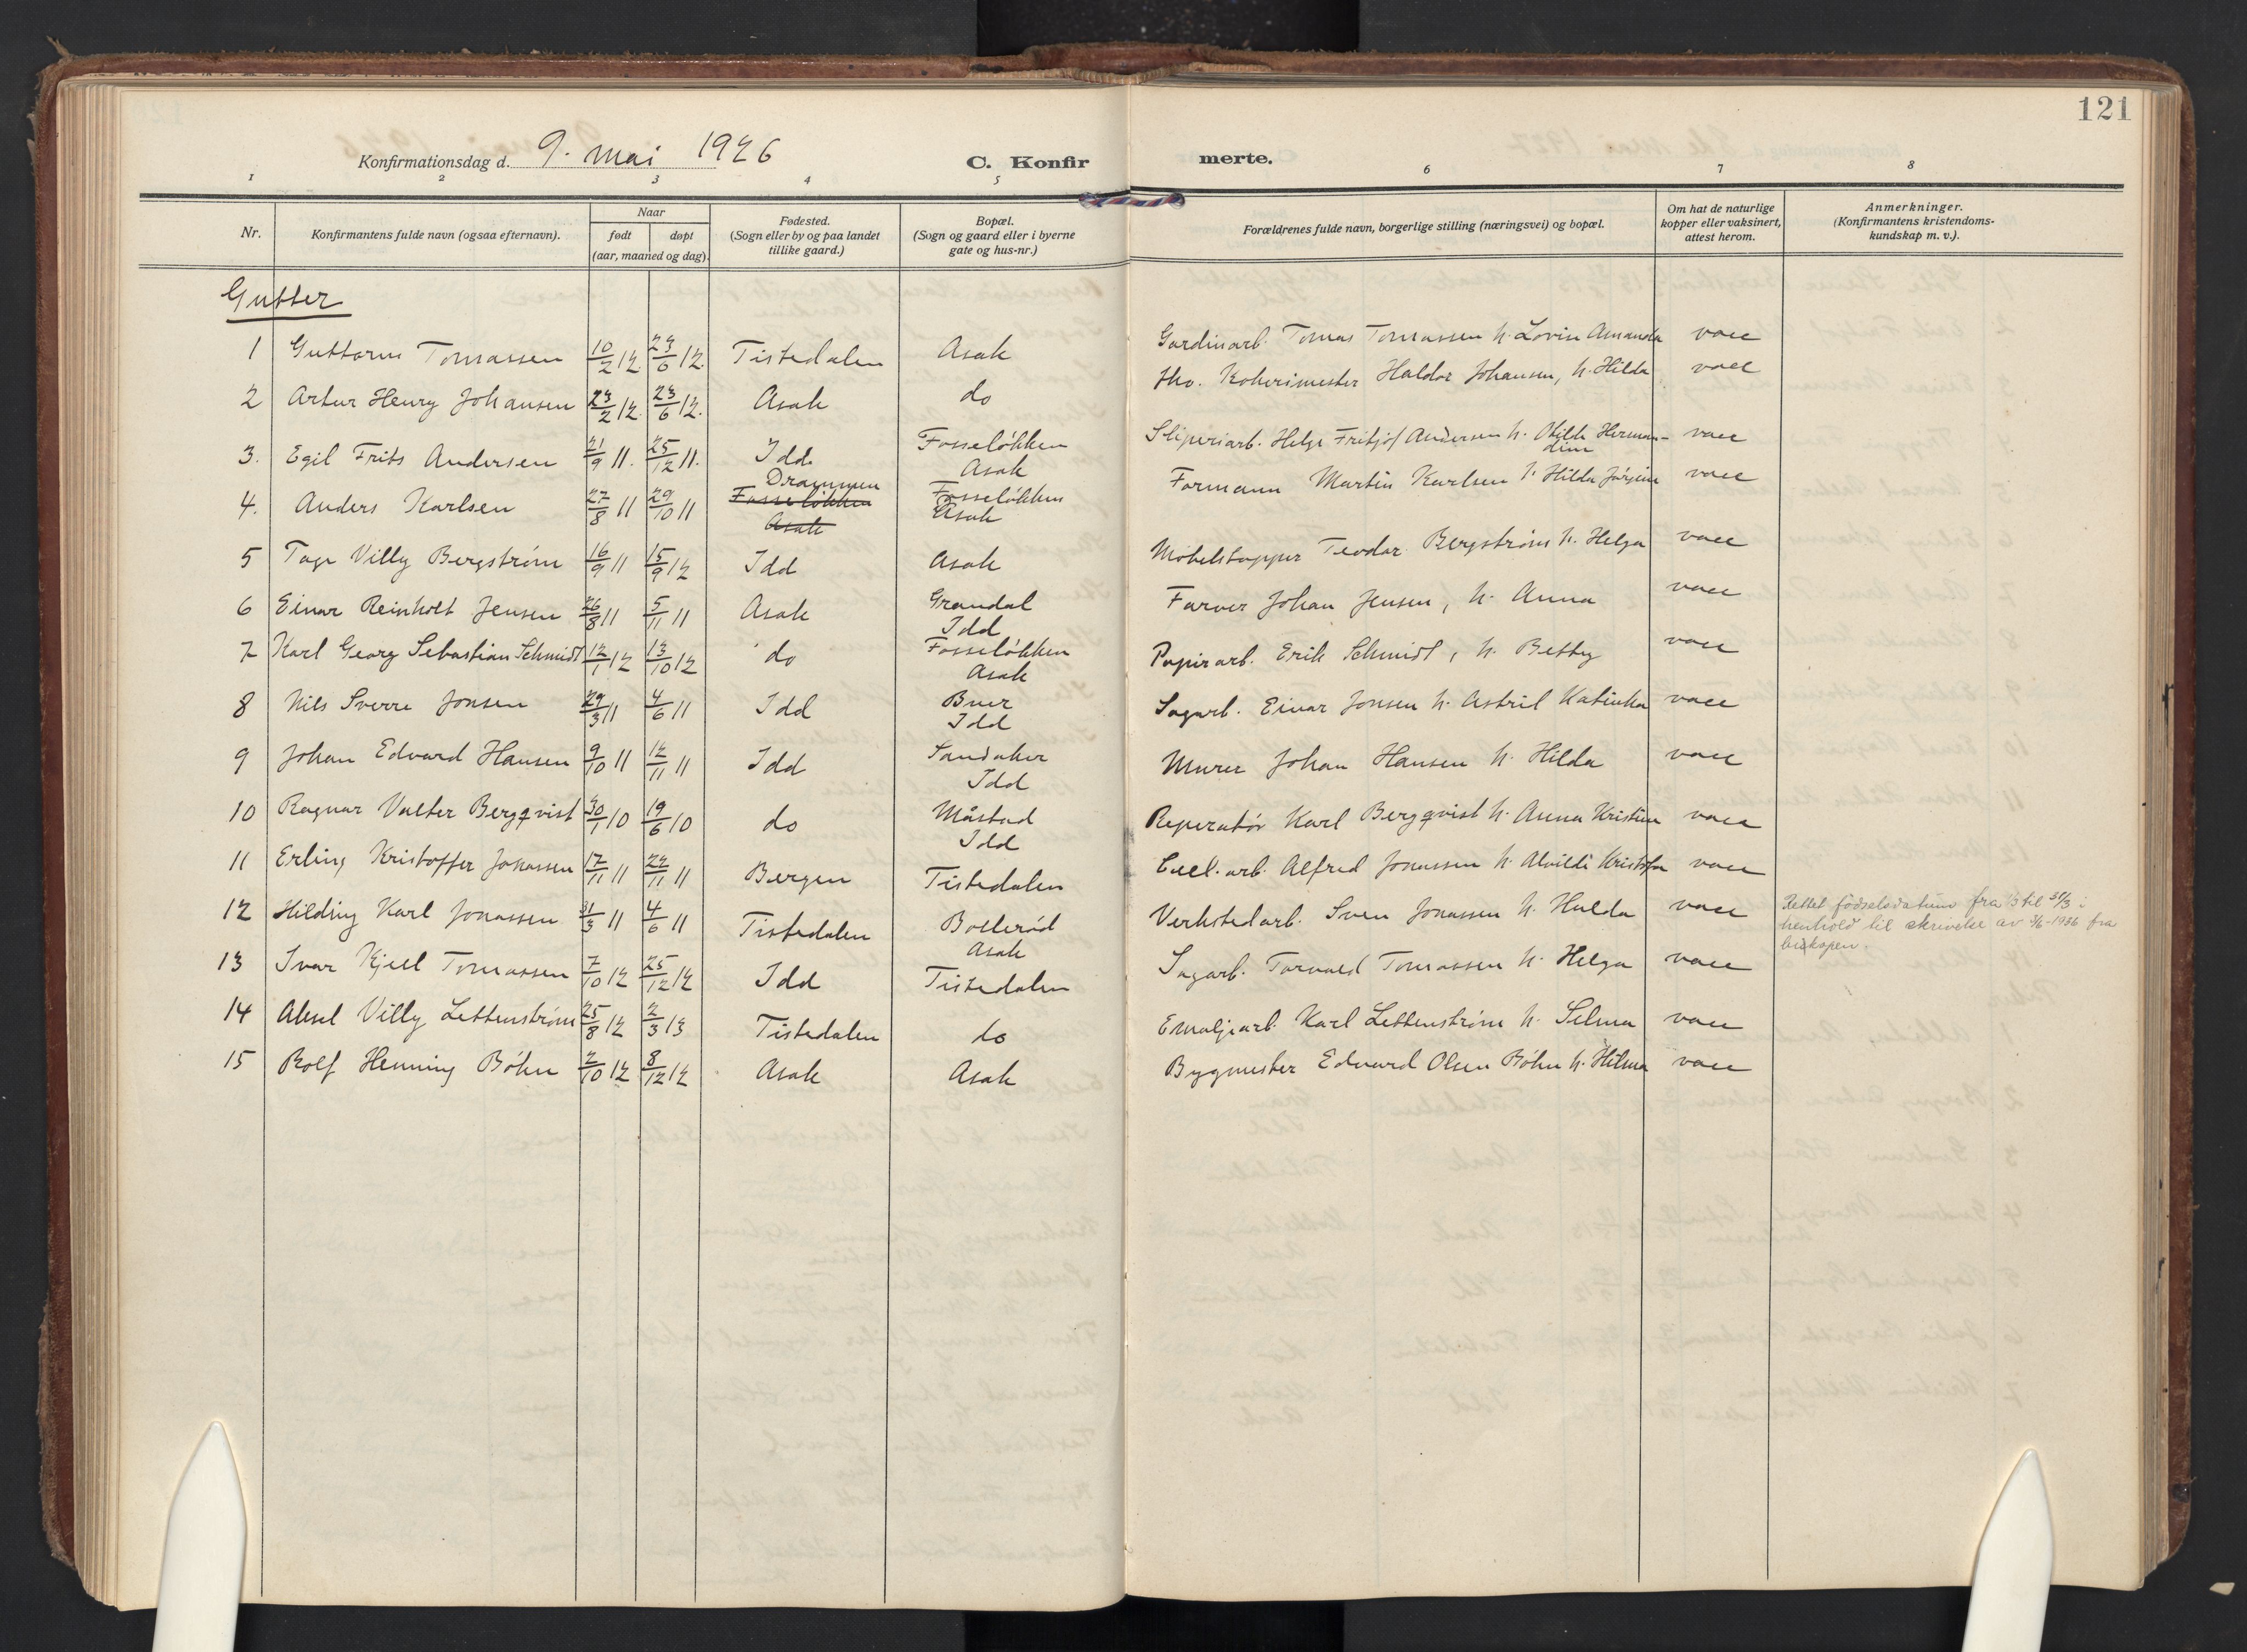 121
Konfirmationsdag d. 9. mai 1926
C. Konfirmerte.
1 2 3 4 5 6 7 8
Nr.
Konfirmantens fulde navn (ogsaa efternavn).
Naar
født døpt
(aar, maaned og dag).
Fødested.
(Sogn eller by og paa landet
tillike gaard.)
Bopæl.
(Sogn og gaard eller i byerne
gate og hus-nr.)
Forældrenes fulde navn, borgerlige stilling (næringsvei) og bopæl.
Om hat de naturlige
kopper eller vaksinert,
attest herom.
Anmerkninger.
(Konfirmantens kristendoms-
kundskap m. v.).
Gutter
1 Guttorm Tomassen 10/2 12. 23/6 12. Tistedalen Asak Gardinarb. Tomas Tomassen h. Lovise Amanda vacc
2 Artur Henry Johansen 23/2 12. 23/6 12. Asak do Kokerimester Haldor Johansen, h. Hilda vacc
3. Egil Frits Andersen 21/9 11. 25/12 11. Idd. Fosseløkken Asak Sliperiarb. Helge Fritjof Andersen h. Otilde Hermandine vacc
4. Anders Karlsen 27/8 11 29/10 11 Drammen Fosseløkken Asak Fosseløkken Asak Formann Martin Karlsen h. Hilda Jørgine vacc
5 Tage Villy Bergstrøm 16/9 11 15/9 12 Idd Asak Møbelstopper Teodor Bergstrøm h. Helga vacc
6 Einar Reinholt Jensen 26/8 11 5/11 11 Asak Grandal Idd Farver Johan Jensen, h. Anna vacc
7 Karl Georg Sebastian Schmidt 12/1 12 13/10 12 do Fosseløkken Asak Papirarb. Erik Schmidt, h. Betty vacc
8 Nils Sverre Jonsen 29/3 11 4/6 11 Idd Buer Idd Sagarb. Einar Jonsen h. Astril Katinka vacc
9 Johan Edvard Hansen 9/10 11 12/11 11 Idd Sandaker Idd Murer Johan Hansen h. Hilda vacc
10 Ragnar Valter Bergqvist 30/1 10 19/6 10 do Måstad Idd Reperatør Karl Bergqvist h. Anna Kristine vacc
11 Erling Kristoffer Jonassen 17/11 11 Bergen Tistedalen Cell. arb. Alfred Jonassen h. Alvilde vacc
12 Hilding Karl Jonassen 31/3 11 4/6 11 Tistedalen Bollerød Asak Verkstedarb. Sven Jonassen h. Hulda vacc Rettet fødselsdatum fra til 31/3 i
henhold til skrivelse av 1936 fra
biskopen.
13 Ivar Kjell Tomassen 7/10 12 25/12 12 Idd Tistedalen Sagarb. Torvald Tomassen h. Helga vacc
14 Aksel Villy Lettenstrøm 25/8 12 2/3 13 Tistedalen do Emaljearb. Karl Lettenstrøm h. Selma vacc
15 Rolf Henning Bøhn 2/10 12 8/12 12 Asak Asak Bygmester Edvard Olsen Bøhn h. Hilma vacc